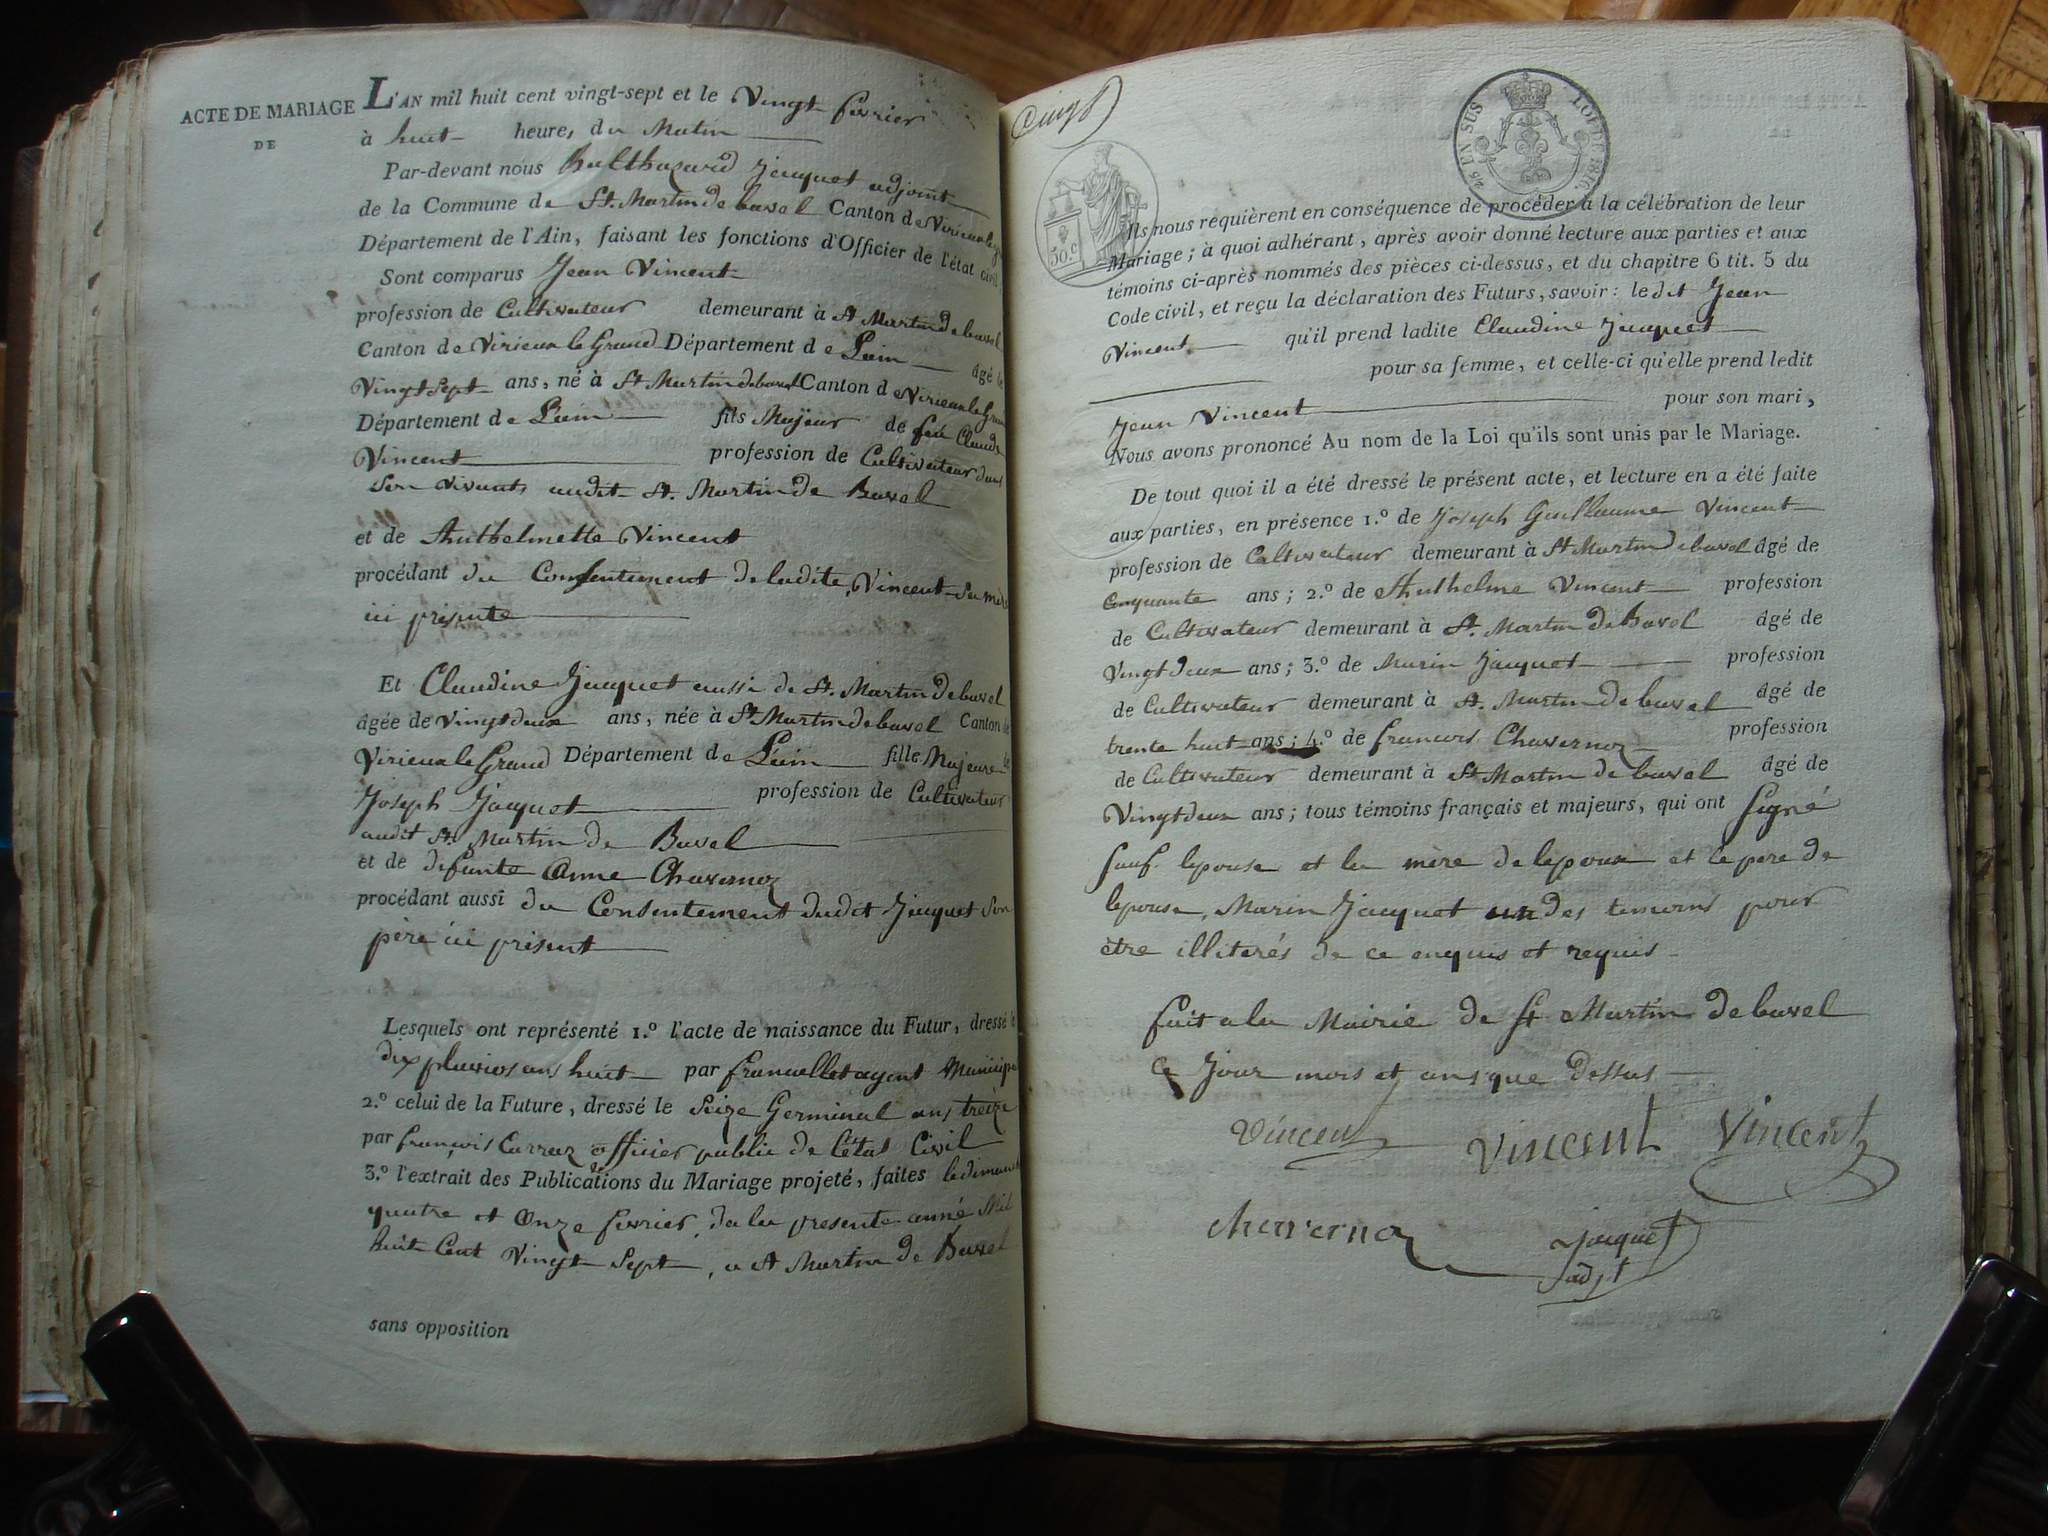 ACTE DE MARIAGE
DE
L'AN mil huit cent vingt-sept et le Vingt fevrier
à huit heures du Matin
Par-devant nous Balthazard Jacquet adjoint
de la Commune de St. Martin de bavel Canton de Virieu le
Département de l'Ain, faisant les fonctions d'Officier de l'état civil
Sont comparus Jean Vincent
profession de Cultivateur demeurant à St Martin de bavel
Canton de Virieux le Grand Département de Lain âgé de
Vingt Sept ans, né à St Martin de bavel Canton de Virieu le Gran
Département de Lain fils Majeur de feu Claude
Vincent profession de Cultivateur dans
Son vivants audit St. Martin de Bavel
et de Anthelmette Vincent
procédant du Consentement de ladite Vincent Sa mère
ici présente
Et Claudine Jacquet aussi de St. Martin De bavel
âgée de vingt deux ans, née à St Martin de bavel Canton de
Virieu le Grand Département de Lain fille Majeure de
Joseph Jacquet profession de Cultivateur
audit St. Martin de Bavel
et de defunte Anne Chavernoz
procédant aussi du Consentement dudit Jacquet Son
père ici present
Lesquels ont représenté 1.º l'acte de naissance du Futur, dressé le
dix pluvios ans huit par francillet agent Municipa
2.º celui de la Future, dressé le Seize Germinal ans treize
par françois Carraz officier public de l'état Civil
3.º l'extrait des Publications du Mariage projeté, faites le dimanch
quatre et Onze fevrier de la presente année Mil
huit Cent Vingt Sept, a St Martin de Bavel
sans opposition
Cingt
25 EN SUS
LOI DE 1816.
30.C
Ils nous requièrent en conséquence de procéder à la célébration de leur
Mariage; à quoi adhérant, après avoir donné lecture aux parties et aux
témoins ci-après nommés des pièces ci-dessus, et du chapitre 6 tit. 5 du
Code civil, et reçu la déclaration des Futurs, savoir: le dit Jean
Vincent qu'il prend ladite Claudine Jacquet
pour sa femme, et celle-ci qu'elle prend ledit
Jean Vincent pour son mari,
Nous avons prononcé Au nom de la Loi qu'ils sont unis par le Mariage.
De tout quoi il a été dressé le présent acte, et lecture en a été faite
aux parties, en présence 1.º de Joseph Guillaume Vincent
profession de Cultivateur demeurant à St Martin De bavel âgé de
Cinquante ans; 2.º de Anthelme Vincent profession
de Cultivateur demeurant à St. Martin De Bavel âgé de
Vingt Deux ans; 3.º de Marin Jacquet profession
de Cultivateur demeurant à St. Martin de bavel âgé de
trente huit ans; 4.º de francois Chavernoz profession
de Cultivateur demeurant à St Martin de bavel âgé de
Vingt deux ans; tous témoins français et majeurs, qui ont Signé
sauf lepouse et la mère de lepoux et le pere de
lepouse, Marin Jacquet un des temoins pour
être illiterés de ce enquis et requis
fait a la Mairie de St Martin de bavel
Ce Jour mois et ans que Dessus
Vincent Vincent Vincent
chavernoz Jacquet
adjt